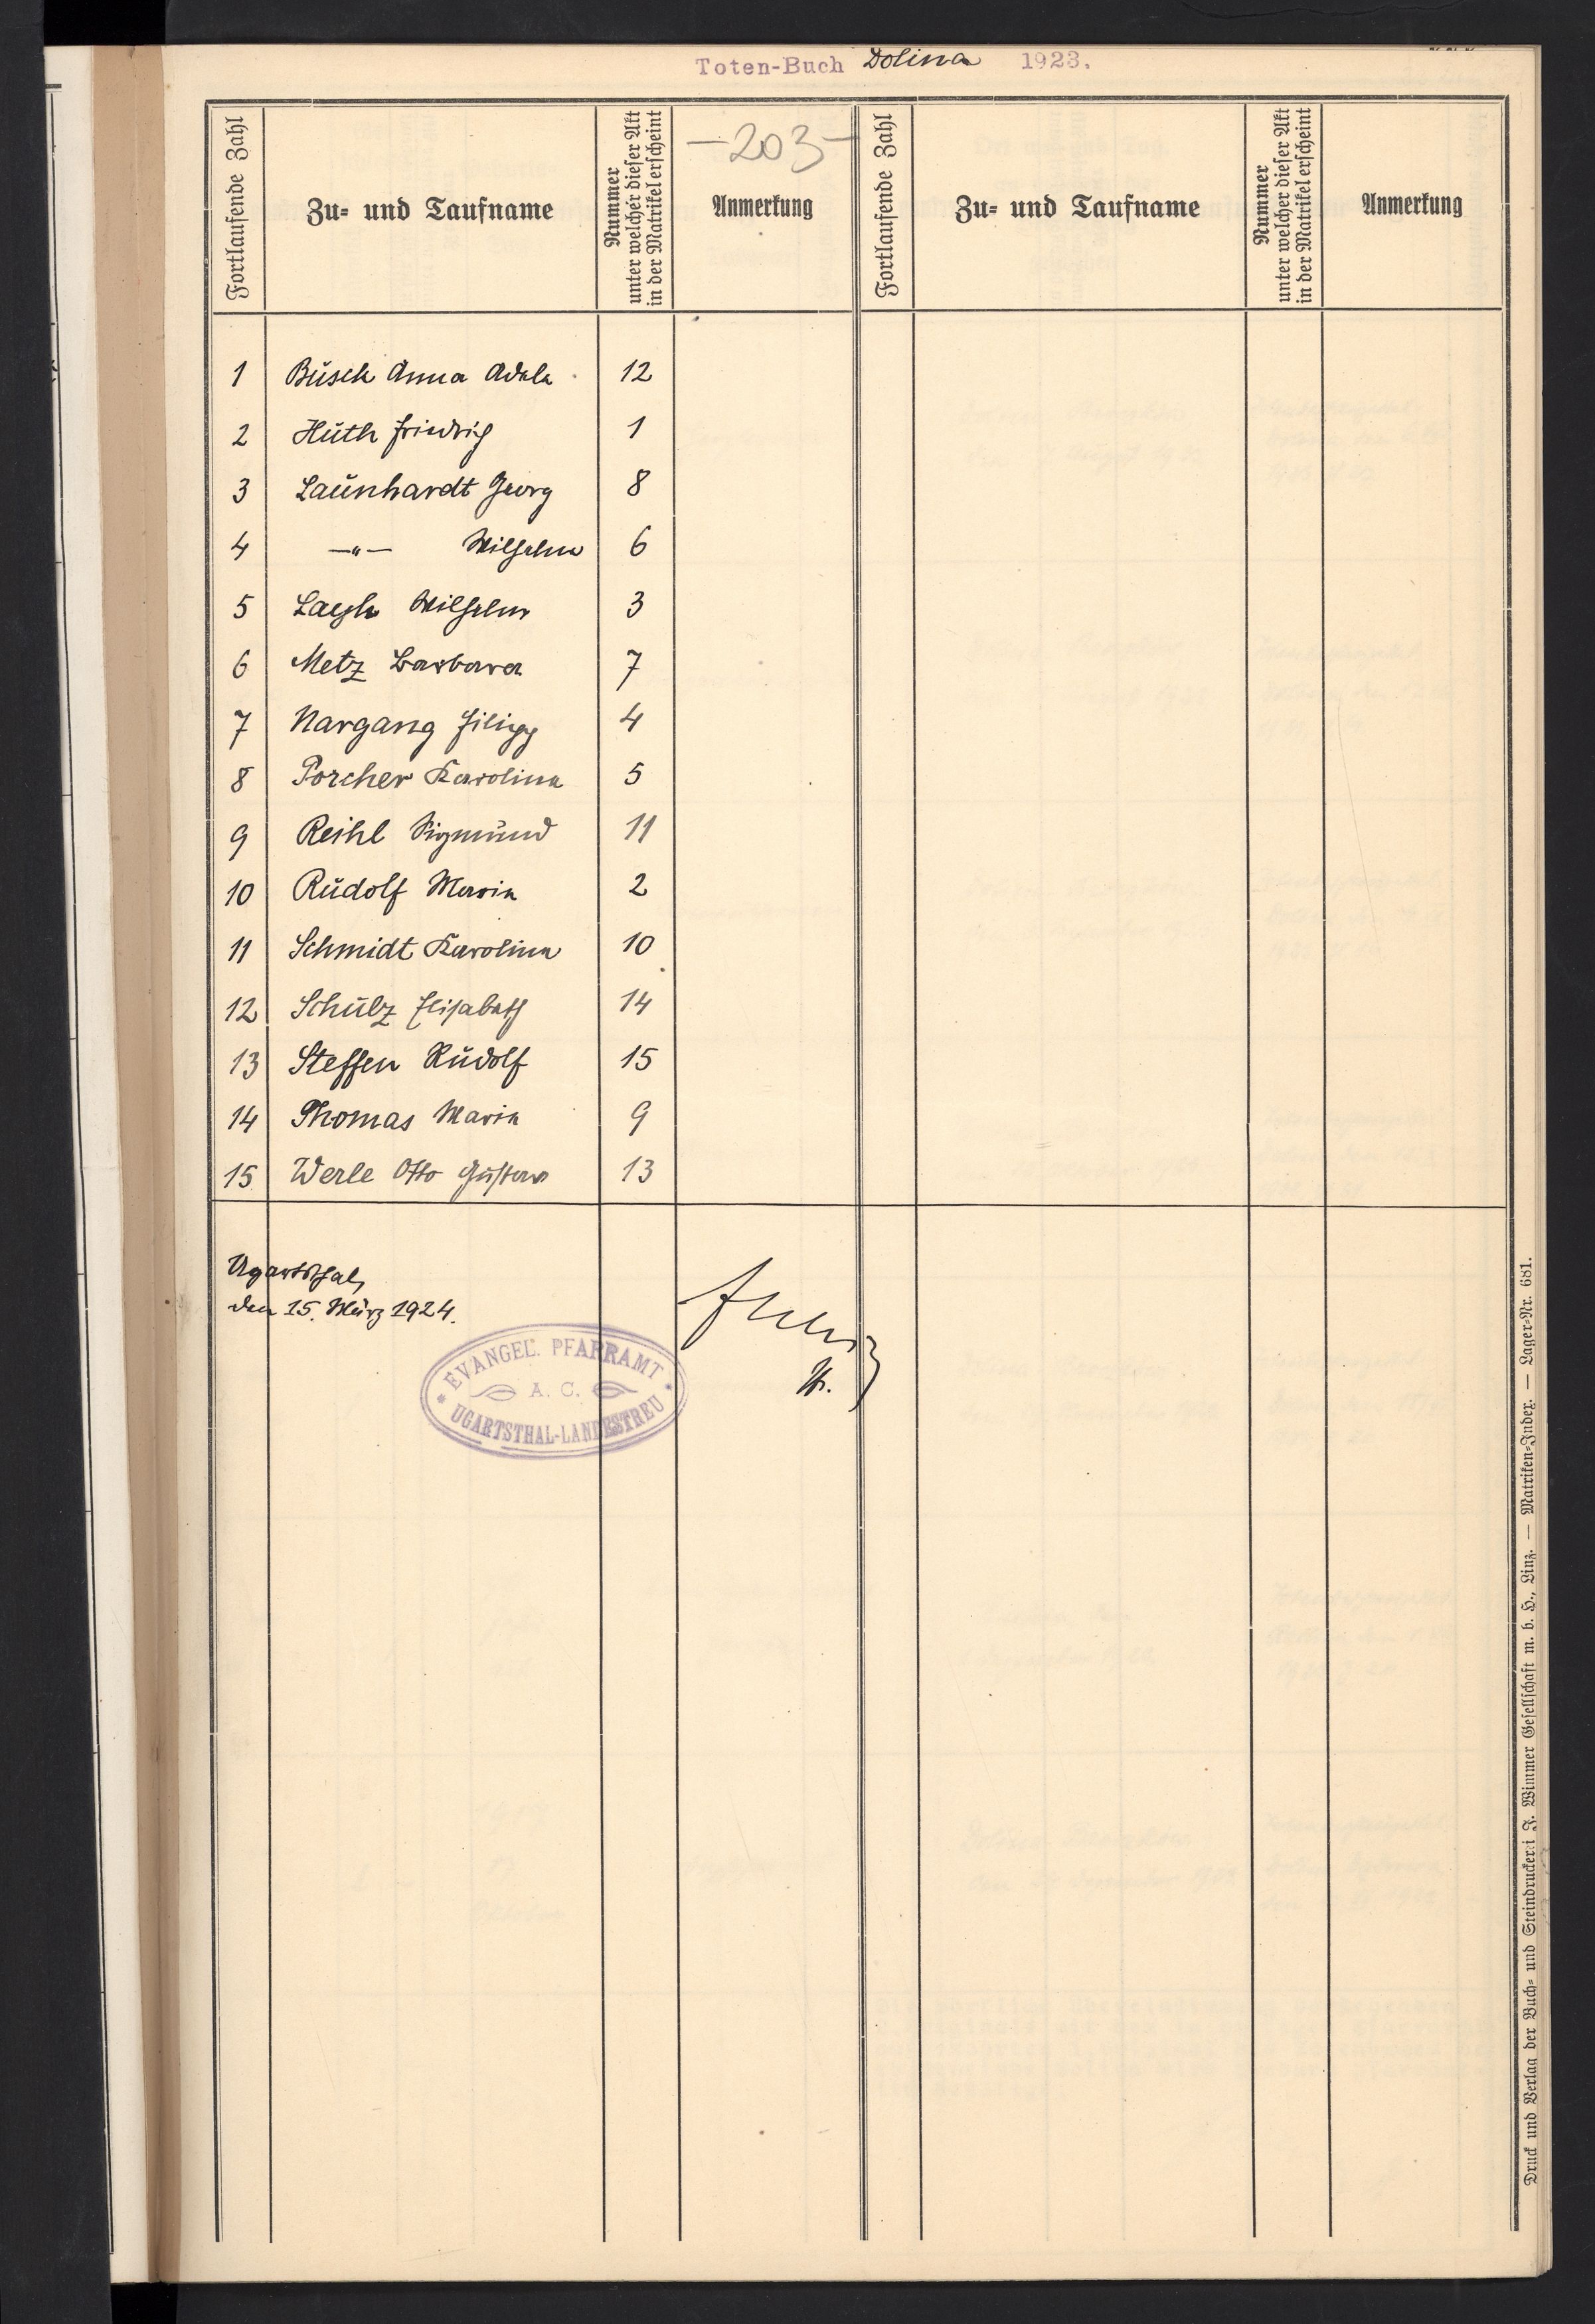 Toten-Buch Dolina 1923.
-203-
Fortlaufende Zahl
Zu- und Taufname
Nummer
unter welcher dieser Akt
in der Matrikel erscheint
Anmerkung
Fortlaufende Zahl
Zu- und Taufname
Nummer
unter welcher dieser Akt
in der Matrikel erscheint
Anmerkung
1 Busch Anna Adele 12
2 Huth Friedrich 1
3 Launhardt Georg 8
4 -"- Wilhelm 6
5 Wilhelm 3
6 Metz Barbara 7
7 Nargang Filipp 4
8 Porcher Karoline 5
9 Reihl Sigmund 11
10 Rudolf Marie 2
11 Schmidt Karoline 10
12 Schulz Elisabeth 14
13 Steffen Rudolf 15
14 Thomas Marie 9
15 Werle Otto Gustav 13
Ugartsthal,
den 15. März 1924.
EVANGEL. PFARRAMT
A. C.
UGARTSTHAL-LANDESTREU
Druck und Verlag der Buch- und Steindruckerei J. Wimmer Gesellschaft m. b. H., Linz. — Matriken-Index. — Lager-Nr. 681.